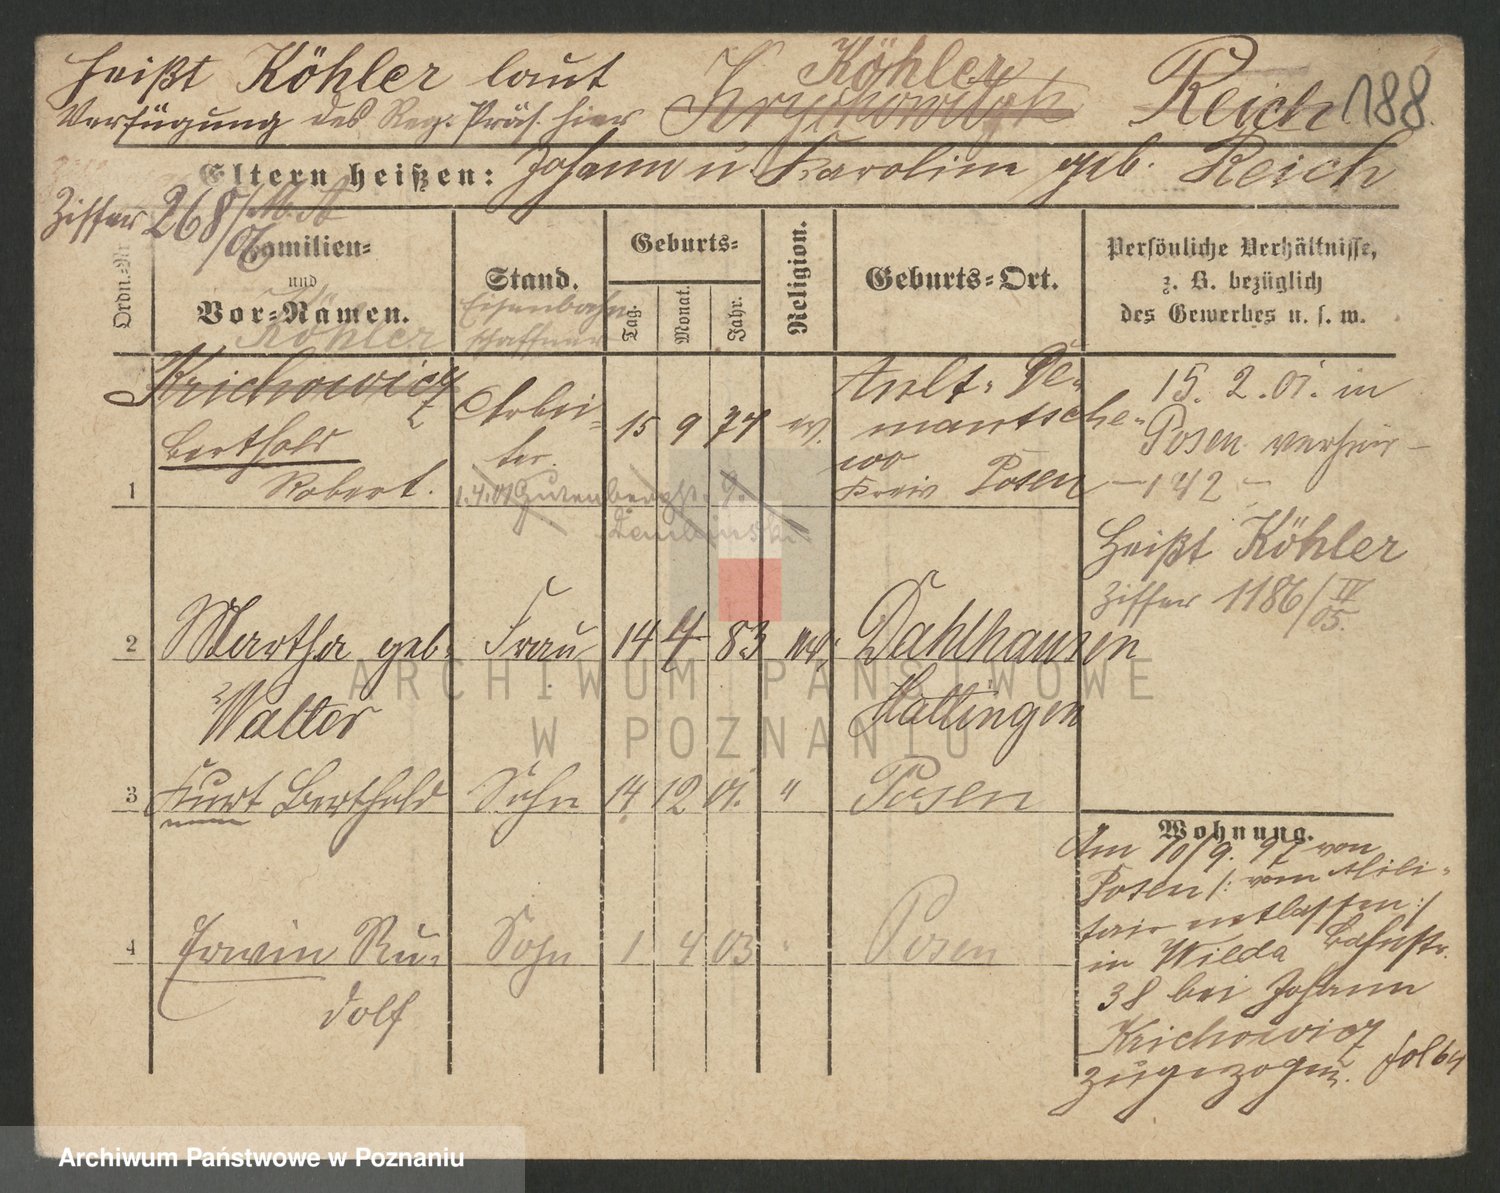 heißt Köhler laut
Verfügung des Reg. Präs. hier
Köhler
Krychowitzk Reich 188.
Eltern heißen: Johann u. Karoline geb. Reich
Ziffer 268/06
Ordn.-Nr
Familien=
und
Vor=Namen.
Köhler
Stand.
Eisenbahn
schaffner
Geburts=
Tag.
Monat.
Jahr.
Religion.
Geburts=Ort.
Persönliche Verhältnisse,
z. B. bezüglich
des Gewerbes u. s. w.
1 Krichowicz
Berthold
Robert.
Arbei=
ter.
15 9 77 ev.
mantsche=
wo
Kreis Posen
1.4.01 Gutenbergstr. 9.
15. 2. 01. in
Posen verhei-
- 142 -
Heißt Köhler
Ziffer 1186/IV
05.
2 Martha geb. Frau 14 4 83 ev. Dahlhausen
Walter Hattingen
3 Kurt Berthold Sohn 14 12 01. " Posen
4 Erwin Ru= Sohn 1 4 03 " Posen
dolf
Wohnung.
Am 10/9. 97 von
Posen /: vom Mili=
tair entlassen :/
in Wilda Bahnstr.
38 bei Johann
Krichowicz
zugezogen. fol 64
ARCHIWUM PAŃSTWOWE
W POZNANIU
Archiwum Państwowe w Poznaniu